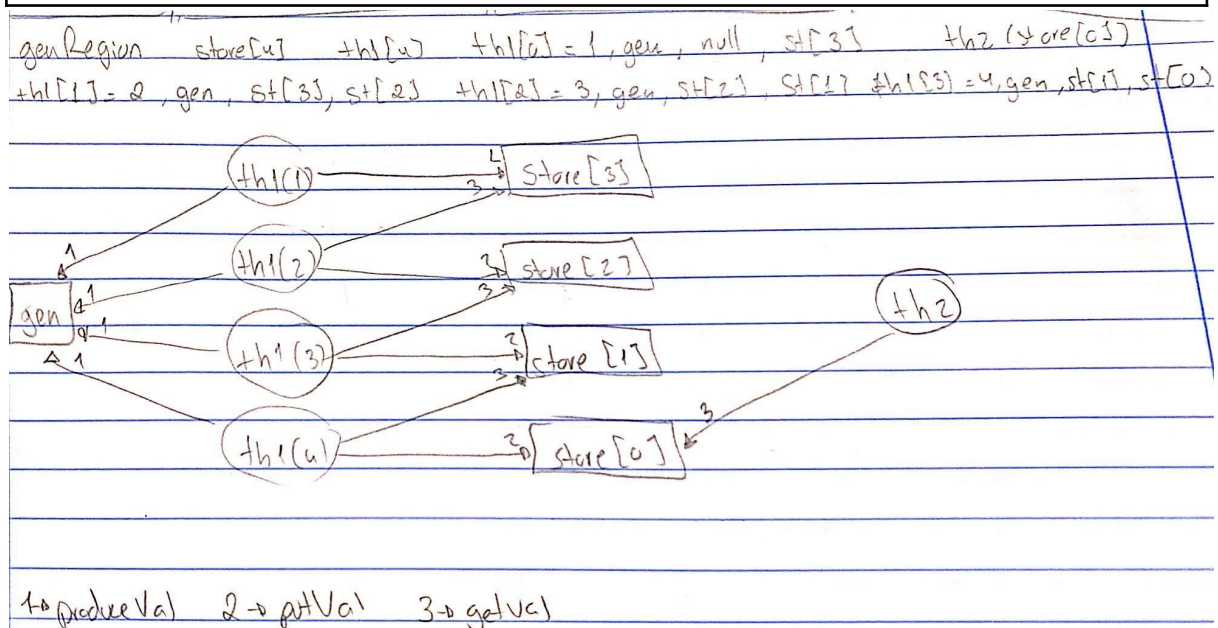 genRegion store[4] th1[4] th1[0] = 1, gen, null, st[3] th2 (store[0])
th1[1] = 2, gen, st[3], st[2] th1[2] = 3, gen, st[2], st[1] th1[3] = 4, gen, st[1], st[0]
th1(1) 2 Store[3]
3
1 th1(2) 2 store[2]
gen 1 3 th2
1 th1(3) 2 store [1]
1 3
3
th1(4) 2 store[0]
1→ produceVal 2→ putVal 3→ getVal